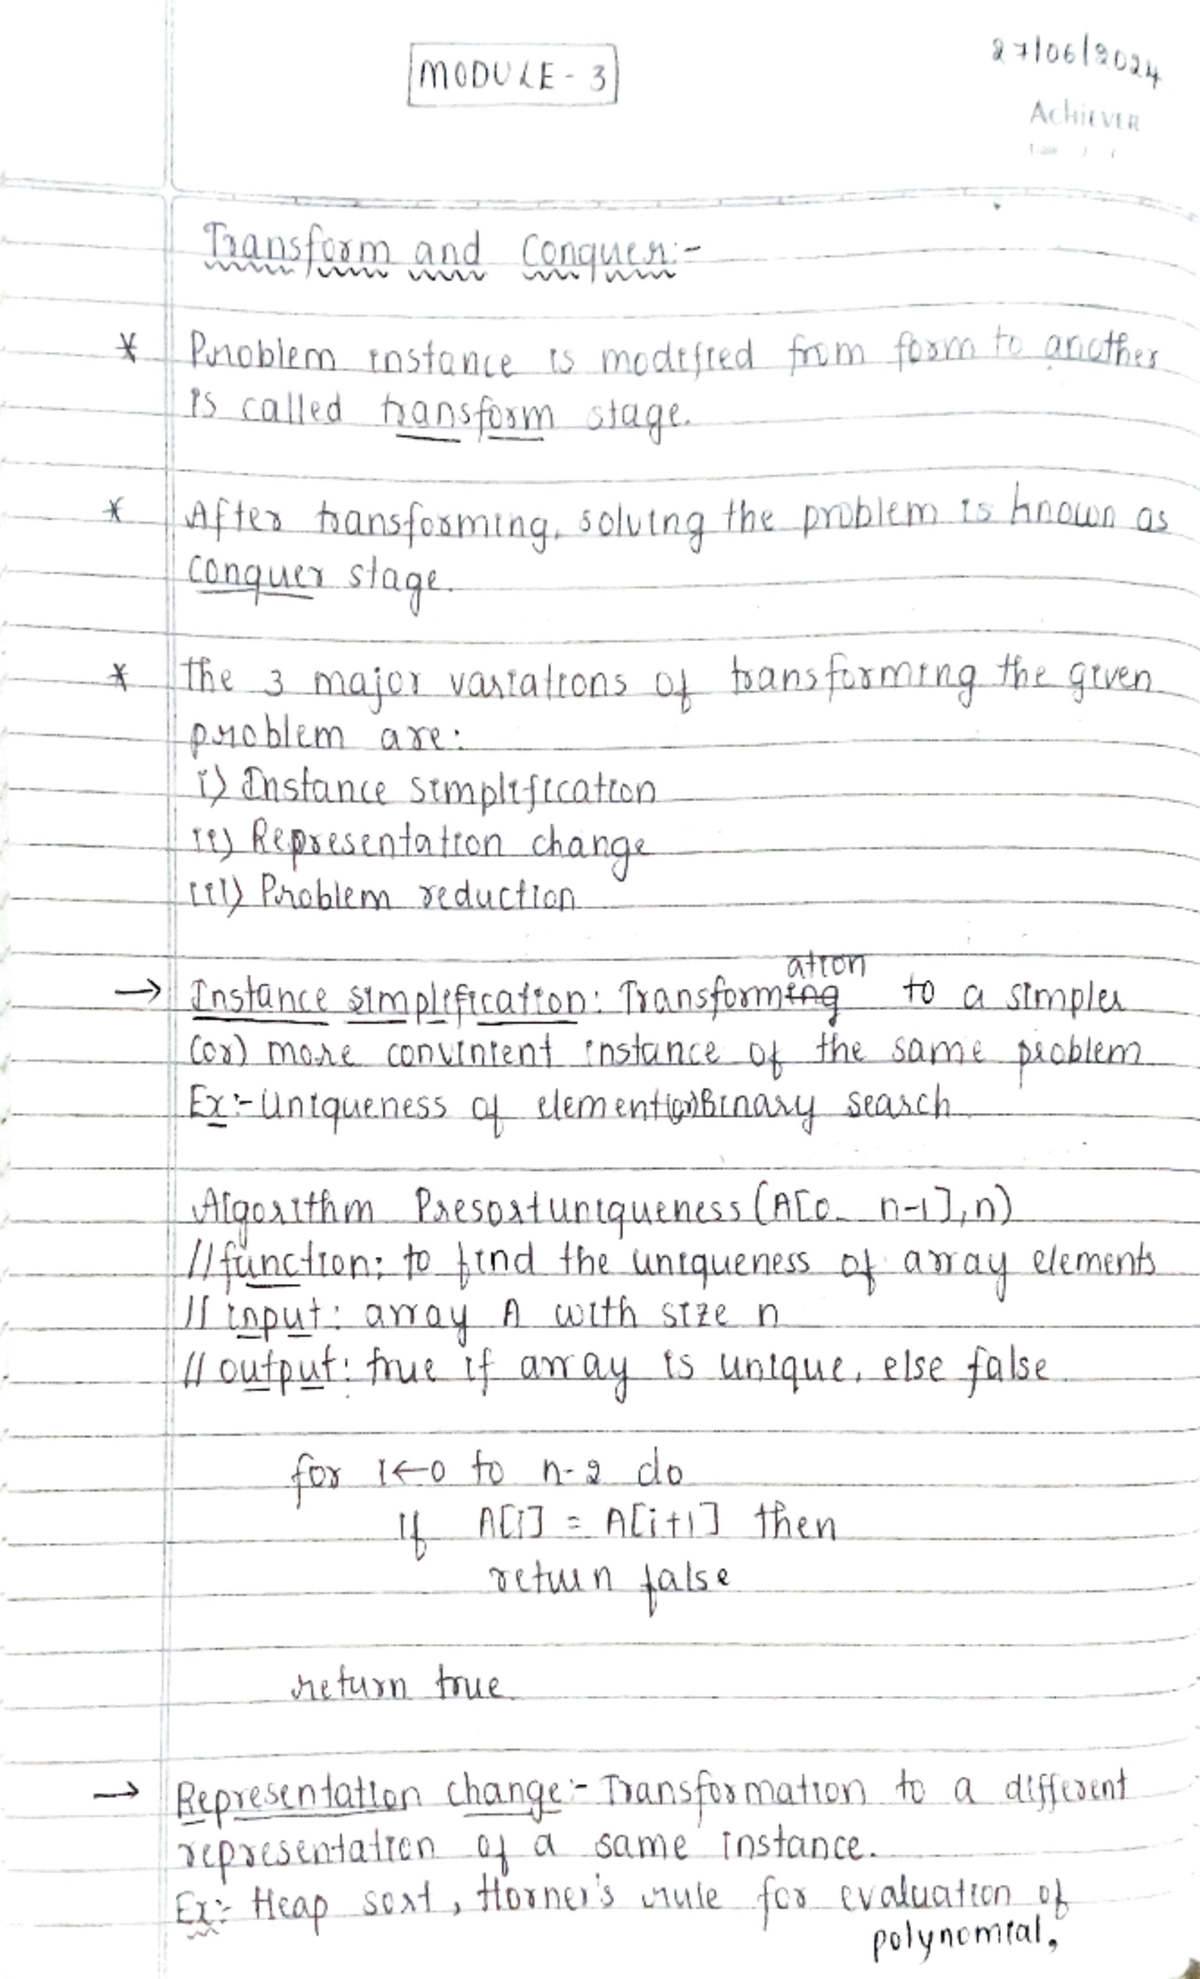 MODULE - 3
27/06/2024
ACHIEVER
Transform and Conquer:-
* Problem instance is modified from form to another
is called transform stage.
* After transforming, solving the problem is known as
conquer stage.
* The 3 major variations of transforming the given
problem are:
i) Instance simplification
ii) Representation change
iii) Problem reduction
ation
→ Instance simplification: Transforming to a simpler
(or) more convinient instance of the same problem
Ex:- Uniqueness of element (or) Binary search
Algorithm Presortuniqueness (A[0.. n-1], n)
// function: to find the uniqueness of array elements
// input: array A with size n
// output: true if array is unique, else false.
for i←0 to n-2 do
if A[i] = A[i+1] then
return false
return true
→ Representation change:- Transformation to a different
representation of a same instance.
Ex:- Heap sort, Horner's rule for evaluation of
polynomial.